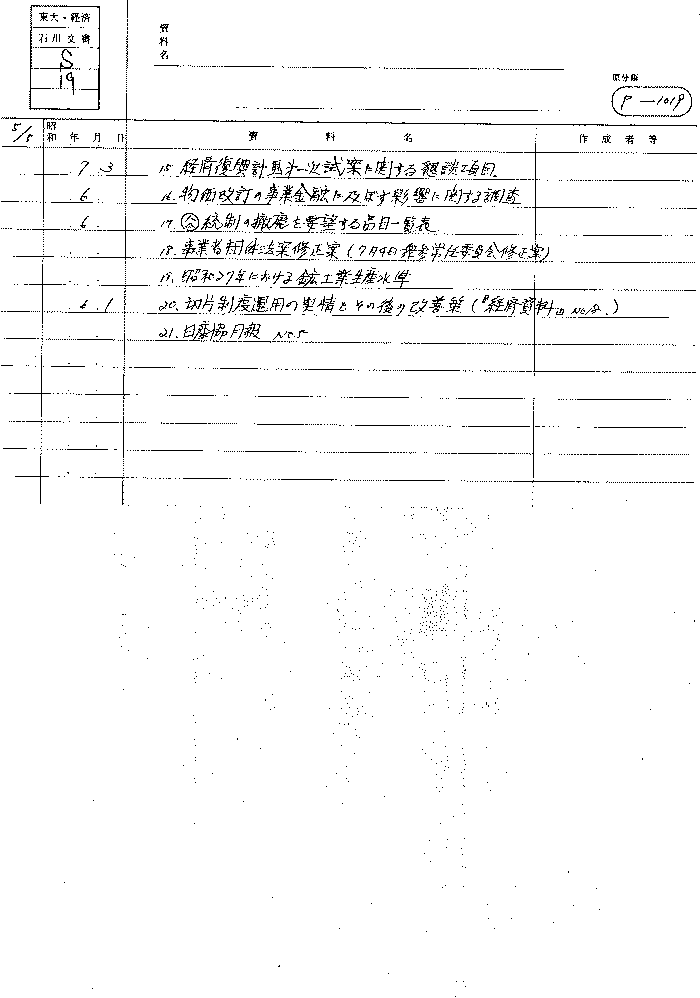 東大・経済
石川文書
S
19
資料名
原分類
P-1019
5/5
昭和 年 月 日
資 料 名
作 成 者 等
7. 3 15. 経済復興計画第一次試案に関する懇談項目
6. 16. 物価改訂の事業金融に及ぼす影響に関する調査
6. 17. ㊗統制の撤廃を要望する品目一覧表
18. 事業者団体法案修正案(7月9日 常任委員会修正案)
19. 昭和27年における鉱工業生産水準
6. 1 20. 切片制度運用の実情とその後の改善策(経済資料 No18.)
21. 日産協月報 No5